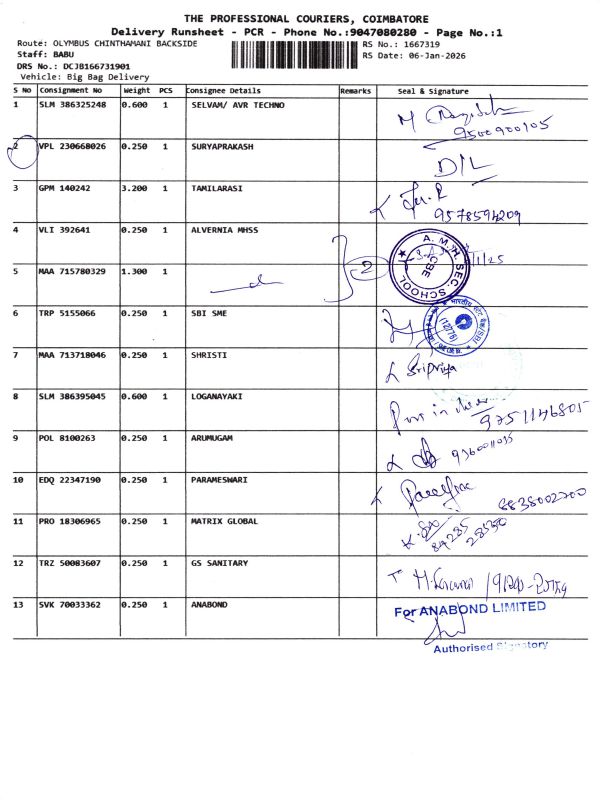 THE PROFESSIONAL COURIERS, COIMBATORE
Delivery Runsheet - PCR - Phone No.:9047080280 - Page No.:1
Route: OLYMBUS CHINTHAMANI BACKSIDE
RS No.: 1667319
Staff: BABU
RS Date: 06-Jan-2026
DRS No.: DCJB166731901
Vehicle: Big Bag Delivery
S No Consignment No Weight PCS Consignee Details Remarks Seal & Signature
1 SLM 386325248 0.600 1 SELVAM/ AVR TECHNO
9500900105
2 VPL 230668026 0.250 1 SURYAPRAKASH
D/L
3 GPM 140242 3.200 1 TAMILARASI
9578594209
4 VLI 392641 0.250 1 ALVERNIA MHSS
2
A. M. H. SEC. SCHOOL
CBE
5 MAA 715780329 1.300 1
6 TRP 5155066 0.250 1 SBI SME
(12776)
7 MAA 713718046 0.250 1 SHRISTI
Sripriya
8 SLM 386395045 0.600 1 LOGANAYAKI
9751146805
9 POL 8100263 0.250 1 ARUMUGAM
10 EDQ 22347190 0.250 1 PARAMESWARI
8838002700
11 PRO 18306965 0.250 1 MATRIX GLOBAL
84285
28530
12 TRZ 50083607 0.250 1 GS SANITARY
13 SVK 70033362 0.250 1 ANABOND
For ANABOND LIMITED
Authorised Signatory